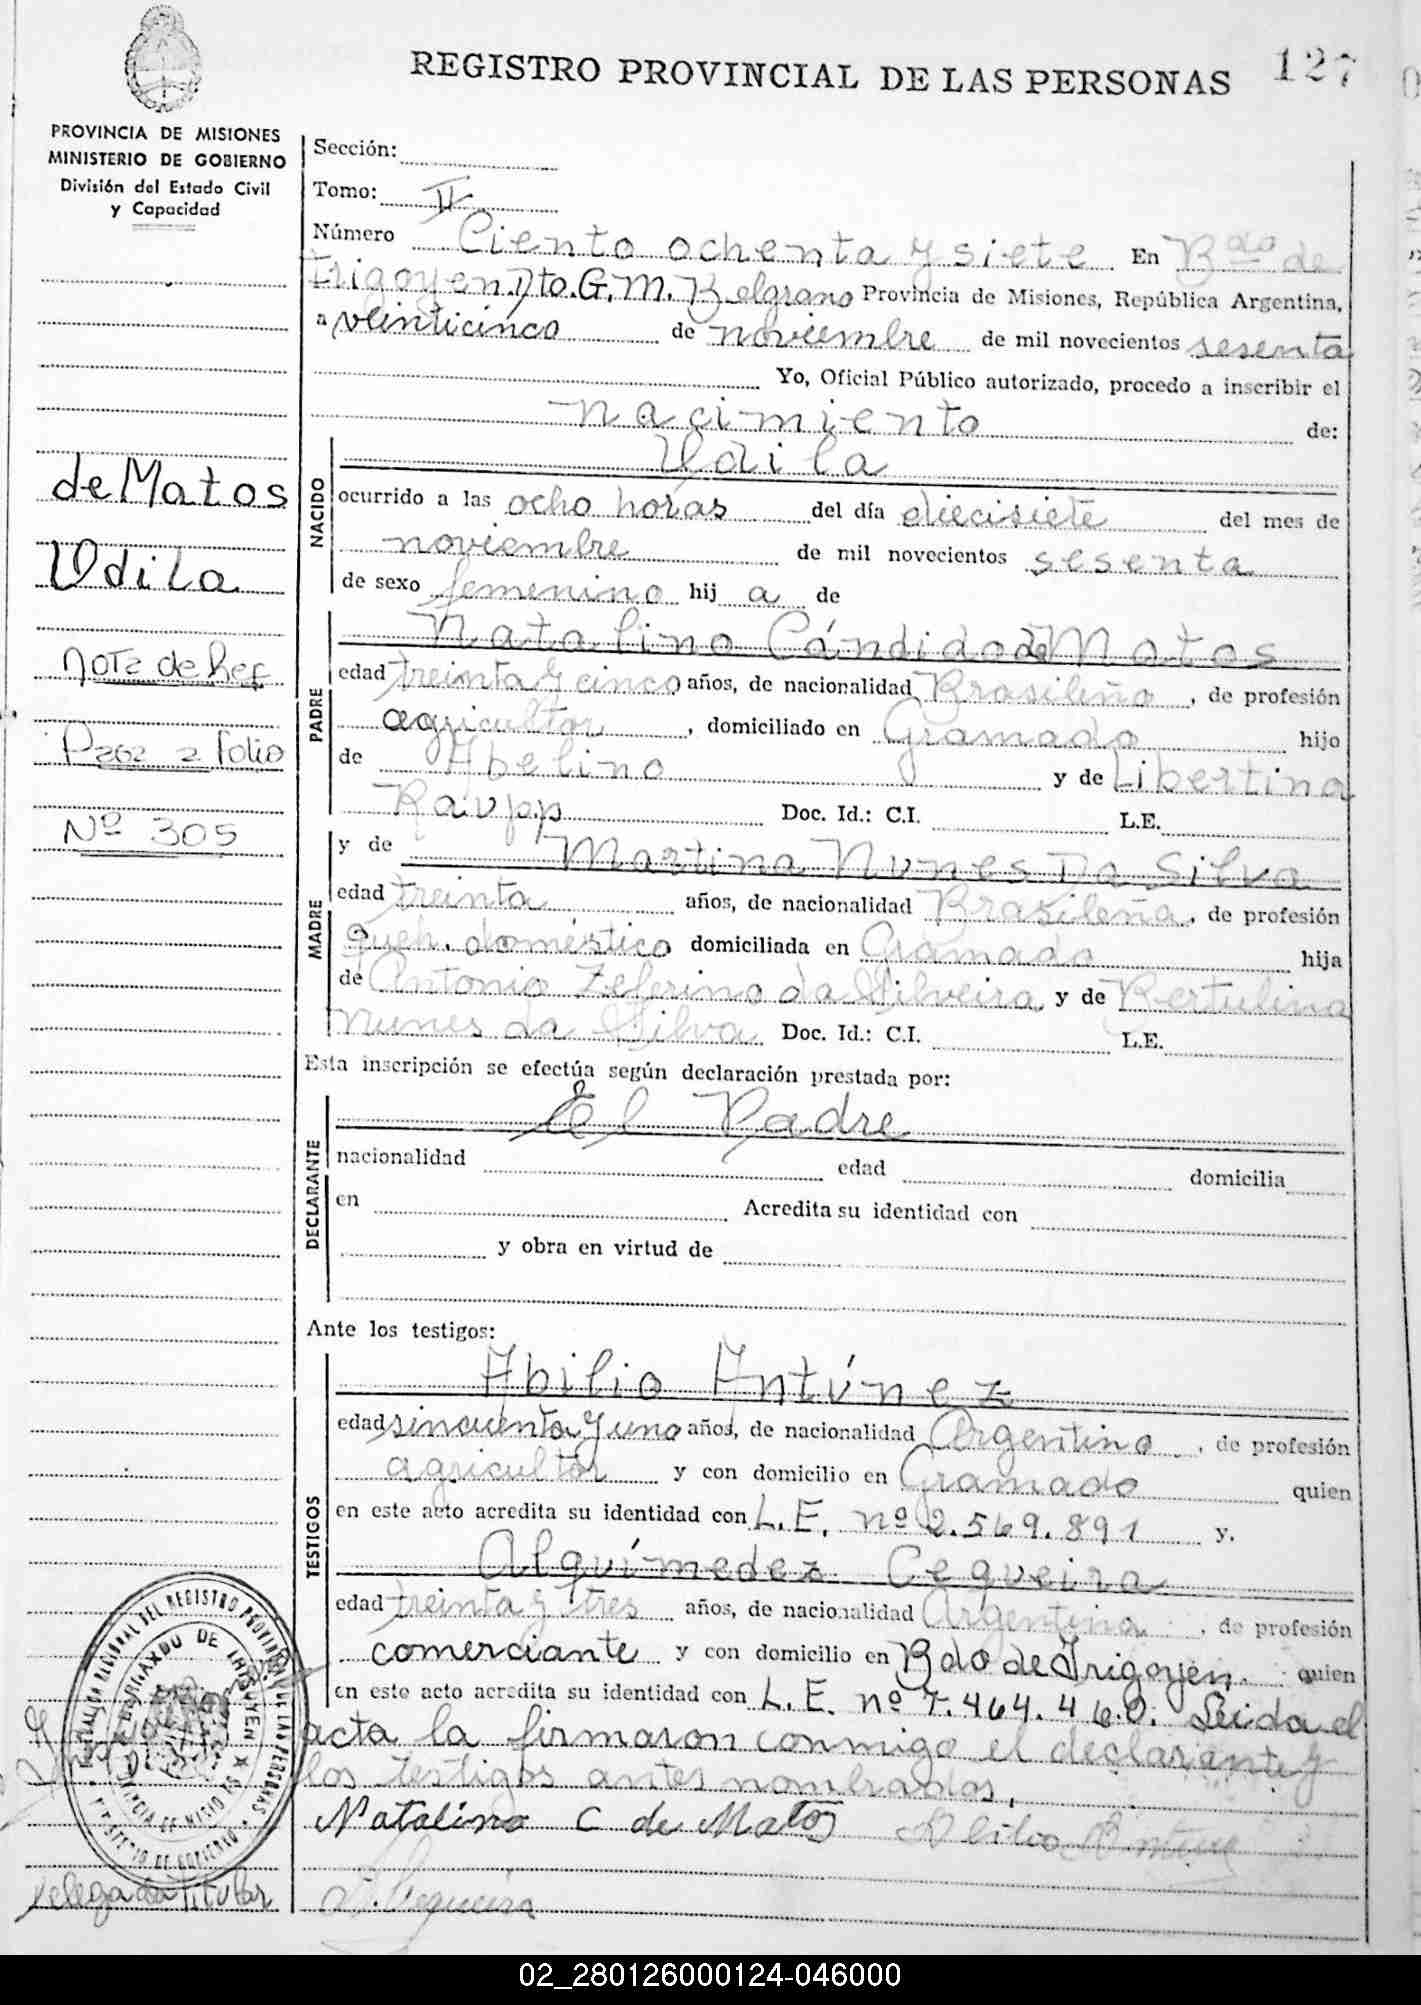 REGISTRO PROVINCIAL DE LAS PERSONAS 127
PROVINCIA DE MISIONES
MINISTERIO DE GOBIERNO
División del Estado Civil
y Capacidad
de Matos
Udila
Nota de Ref
Pza62 2 folio
Nº 305
Sección:
Tomo: II
Número Ciento ochenta y siete En Bdo de
Irigoyen Dto. G. M. Belgrano Provincia de Misiones, República Argentina,
a veinticinco de noviembre de mil novecientos sesenta
Yo, Oficial Público autorizado, procedo a inscribir el
nacimiento de:
NACIDO
Udila
ocurrido a las ocho horas del día diecisiete del mes de
noviembre de mil novecientos sesenta
de sexo femenino hij a de
PADRE
Natalino Cándido de Matos
edad treinta y cinco años, de nacionalidad Brasileño, de profesión
agricultor, domiciliado en Gramado hijo
de Abelino y de Libertina
Raupp Doc. Id.: C.I. L.E.
MADRE
y de Martina Nunes Da Silva
edad treinta años, de nacionalidad Brasileña, de profesión
queh. doméstico domiciliada en Gramado hija
de Antonio Zeferino da Silveira y de Bertulina
Nunes da Silva Doc. Id.: C.I. L.E.
Esta inscripción se efectúa según declaración prestada por:
DECLARANTE
El Padre
nacionalidad edad domicilia
en Acredita su identidad con
y obra en virtud de
Ante los testigos:
TESTIGOS
Abilio Antúnez
edad sincuenta y uno años, de nacionalidad Argentino, de profesión
agricultor y con domicilio en Gramado quien
en este acto acredita su identidad con L. E. nº 2.569.891 y.
Alquímedez Cequeira
edad treinta y tres años, de nacionalidad Argentina, de profesión
comerciante y con domicilio en Bdo de Irigoyen. quien
en este acto acredita su identidad con L. E. nº 7.464.460. Leida el
acta la firmaron conmigo el declarante y
los testigos antes nombrados,
Natalino C de Matos Abilio Antunez
A. Cequeira
Delegada Titular
02_280126000124-046000